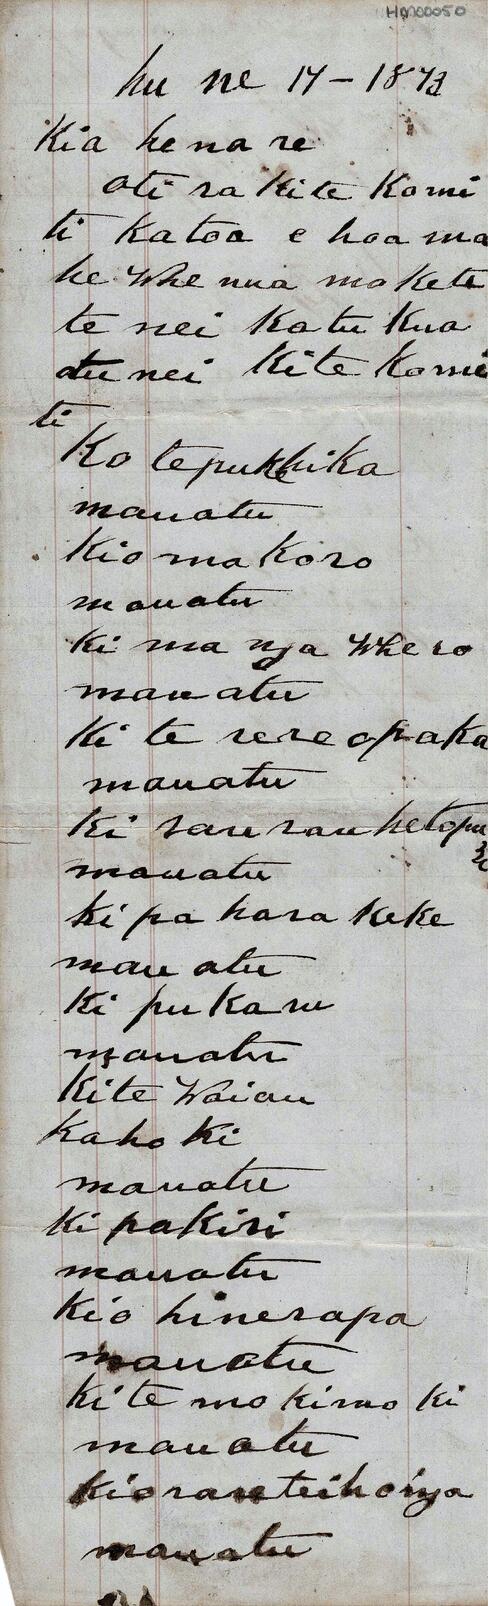 HM00050
hu ne 17 - 1873
Kia he na re
oti ra ki te Komi
ti Katoa e hoa ma
he Whe nua mo kete
te nei Ka tu Kua
atu nei Ki te Komi
ti
Ko te puke hika
mau atu
Ki o ma Koro
mau atu
Ki ma nga Whe ro
mau atu
Ki te re re o pa ka
mau atu
Ki rau rau he topu
mau atu
Ki pa hara Keke
mau atu
Ki pu Ka ru
mau atu
Ki te Wai au
ka ho Ki
mau atu
Ki pa Kiri
mau atu
Ki o hine rapa
mau atu
Ki te mo ki mo ki
mau atu
mau atu